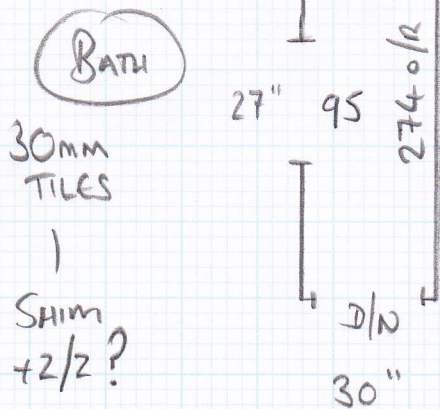 BATH
30MM
TILES
SHIM
+2/2?
27" 95
274 O/R
D/N
30"